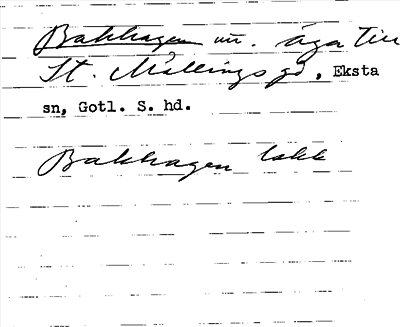 Bakhagen m. äga till
St. Mällings gd, Eksta
sn, Gotl. S. hd.
Bakhagen